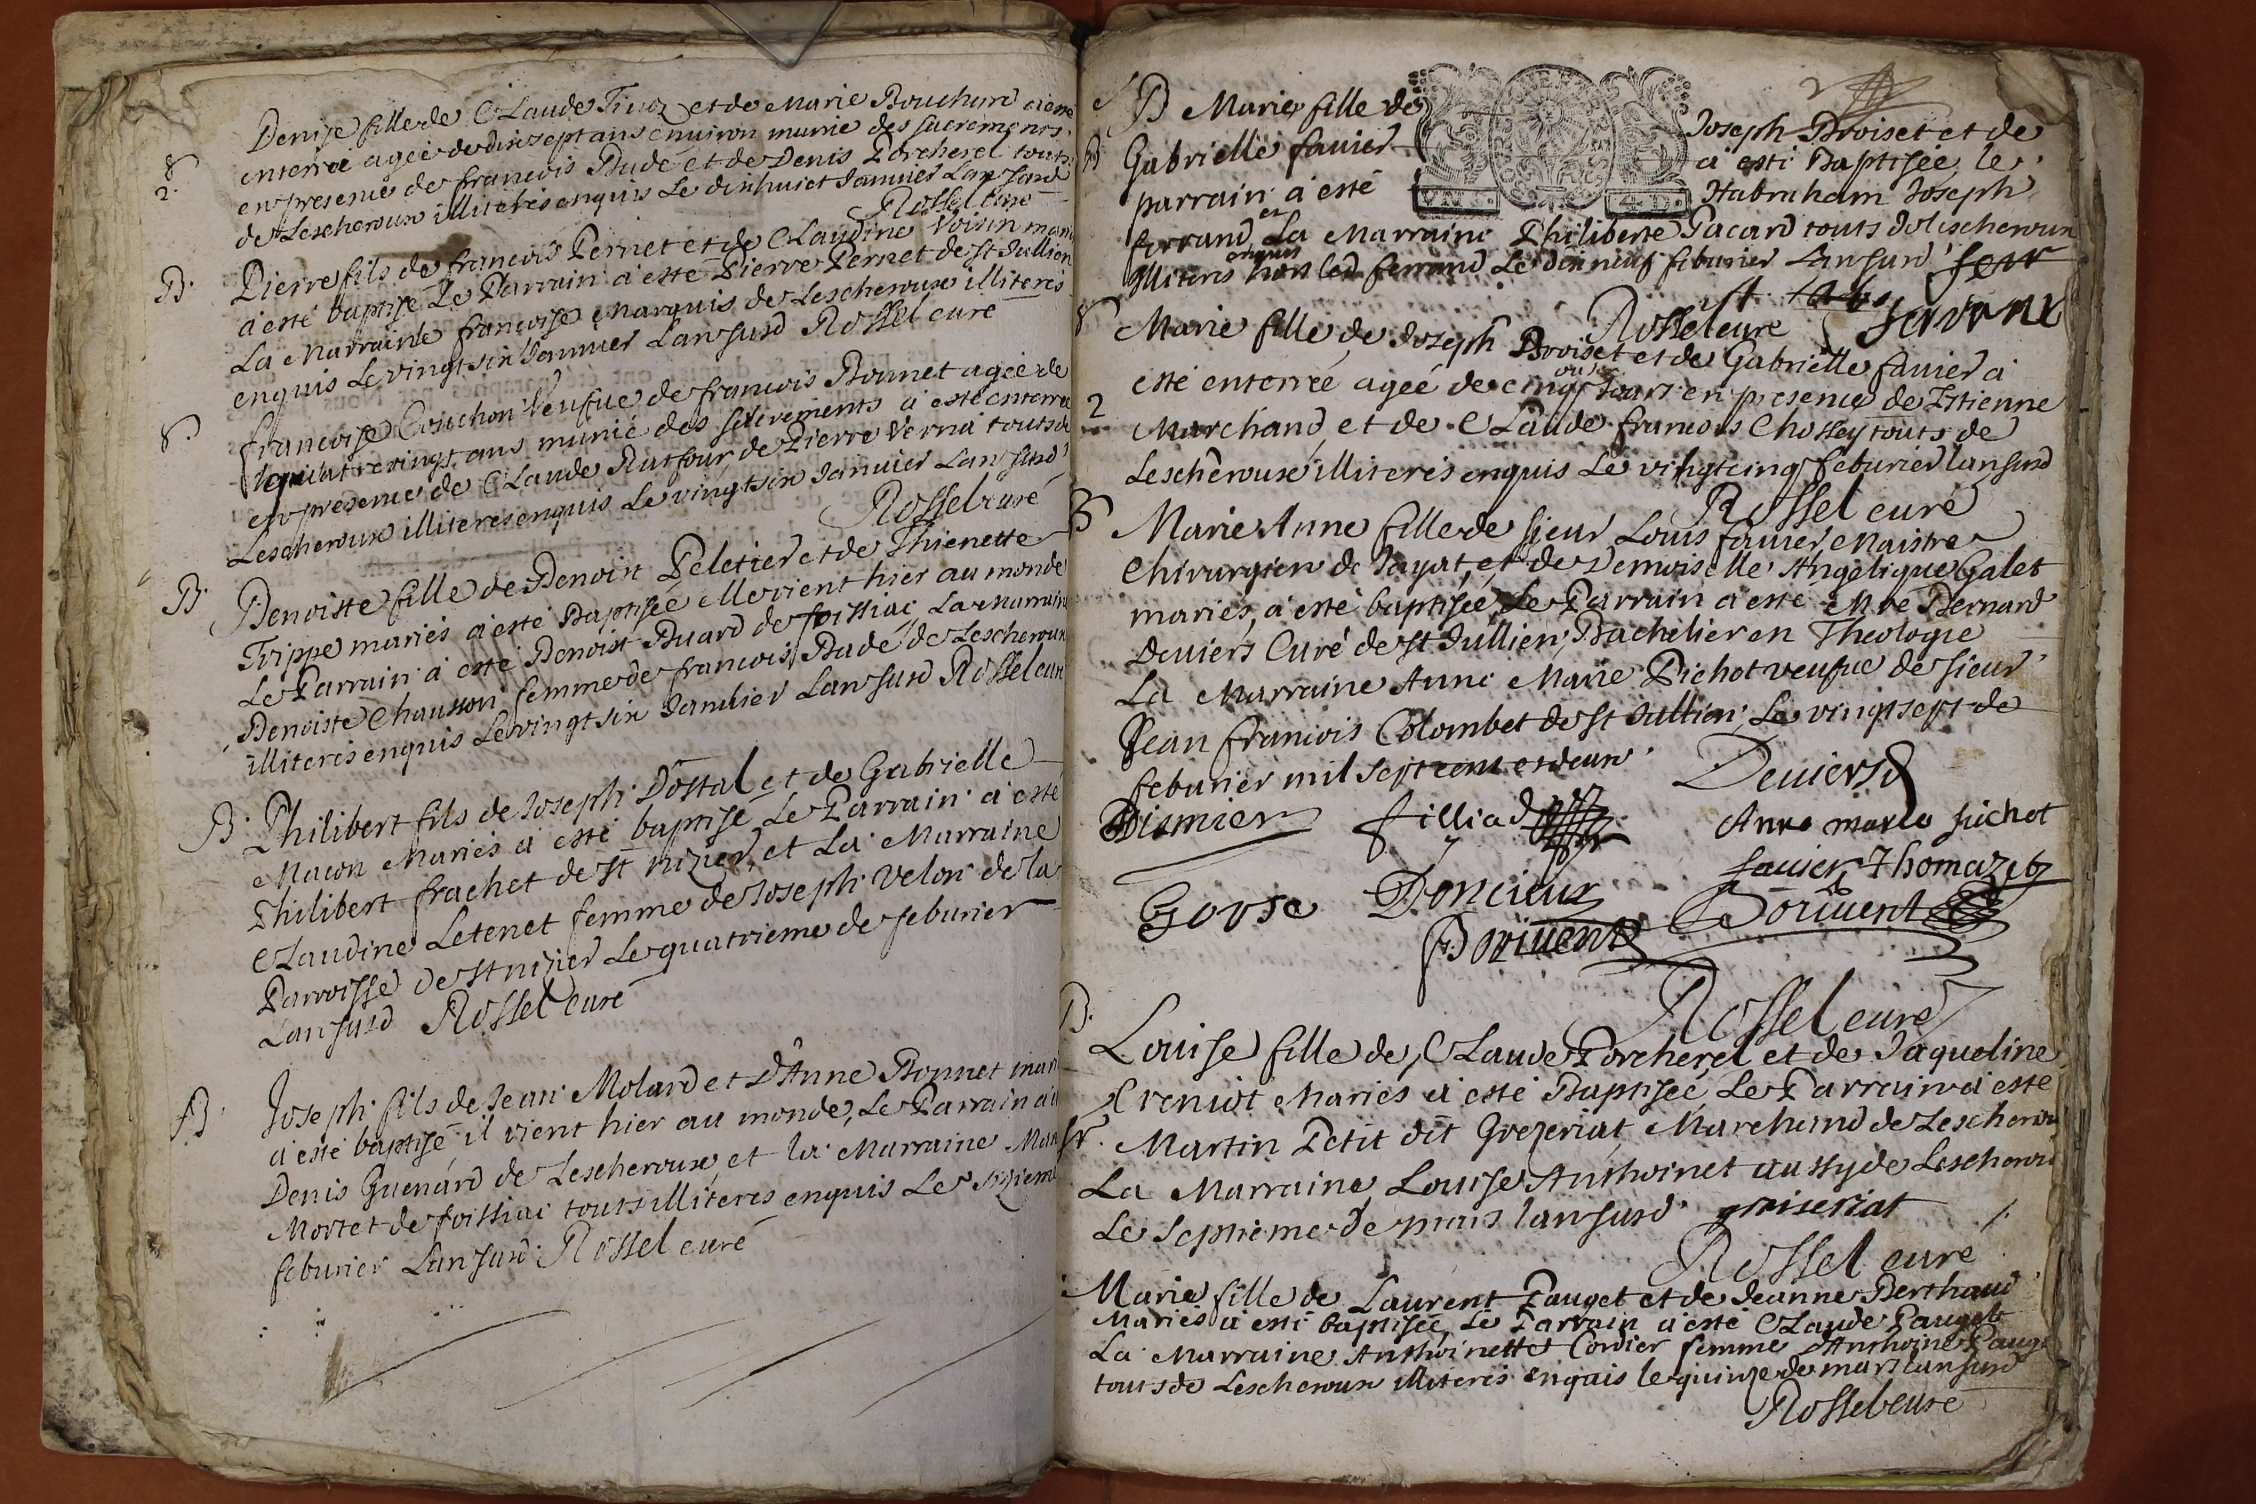 Denise fille de Claude Tiuoz et de Marie Bouchard a esté
enterrée agée de dixsept ans enuiron munie des sacrements
en presence de francois Budé et de Denis Porcherel touts
de Lescheroux illiterés enquis Le dixhuict Januier Lan susd
Rossel curé
S.
2.
B.
Pierre fils de francois Pernet et de Claudine Voisin mari
a esté baptisé Le Parrain a esté Pierre Pernet de St Jullien
La Marraine francoise Marquis de Lescheroux illiterés
enquis Le vingt six Januier Lan susd Rossel curé
S.
francoise Couchon Veufue de francois Bonnet agée de
quatre vingt ans munie des sacrements a esté enterrée
en presence de Claude Rutfour, de Pierre Verna touts de
Lescheroux illiterés enquis Le vingt six Januier Lan susd
Rossel curé
B.
Benoiste fille de Benoist Peletier et de Thienette
Trippe mariés a esté Baptisée elle vient hier au monde
Le Parrain a esté Benoist Buard de foissiac La Marraine
Benoiste Chausson femme de francois Budé de Lescheroux
illiterés enquis Le vingt six Januier Lan susd Rossel curé
B.
Philibert fils de Joseph Dostal et de Gabrielle
Macon Mariés a esté baptisé Le Parrain a esté
Philibert frachet de St nizier, et La Marraine
Claudine Letenet femme de Joseph Velon de la
Parroisse de St nizier Le quatrieme de feburier
Lan susd Rossel curé
B.
Joseph fils de Jean Molard et d'Anne Bonnet mari
a esté baptisé, il vient hier au monde, Le Parrain a
Denis Guenard de Lescheroux, et la Marraine
Mortet de foissiac touts illiterés enquis Le sixieme
feburier Lan susd Rossel curé
B Marie fille de Joseph Broiset et de
Gabrielle fauier a esté Baptisée le
parrain a esté Habraham Joseph
UN S. 4. D.
ferrand et La Marraine Philiberte Pacard touts de lescheroux
illiterés enquis hors led ferrand Le dix neuf feburier Lan susd
Rossel curé
S
2
Marie fille de Joseph Broiset et de Gabrielle fauier a
esté enterrée agée de cinq jours en presence de Estienne
Marchand, et de Claude francois Chossey touts de
Lescheroux illiterés enquis Le vingtcinq feburier lan susd
Rossel curé
B
Marie Anne fille de sieur Louis fauier Maistre
Chirurgien de Jayat, et de Demoiselle Angelique Galet
mariés, a esté baptisée, Le Parrain a esté Mre Bernard
Deuiers Curé de St Jullien, Bachelier en Theologie
La Marraine Anne Marie Pichot veufue de sieur
Jean francois Colombet de St Jullien, Le vingt sept de
feburier mil sept cent et deux
Deuiers
filliad
Anne marie pichot
fauier Thomazet
Gorse
Doncieux
Boriuent
Rossel curé
B.
Louise fille de Claude Porcherel et de Jaqueline
Mariés a esté Baptisée Le Parrain a esté
sr. Martin Petit dit Grezeriat, Marchand de Lescheroux
La Marraine Louise Anthoinet aussy de Lescheroux
Le septieme de mars lan susd griseriat
Rossel curé
Marie fille de Laurent Pauget et de Jeanne Berthaud
Mariés a esté baptisée, Le Parrain a esté Claude Pauget
La Marraine Anthoinette Cordier femme d'Anthoine Pauget
touts de Lescheroux illiterés enquis le quinze de mars lan susd
Rossel curé